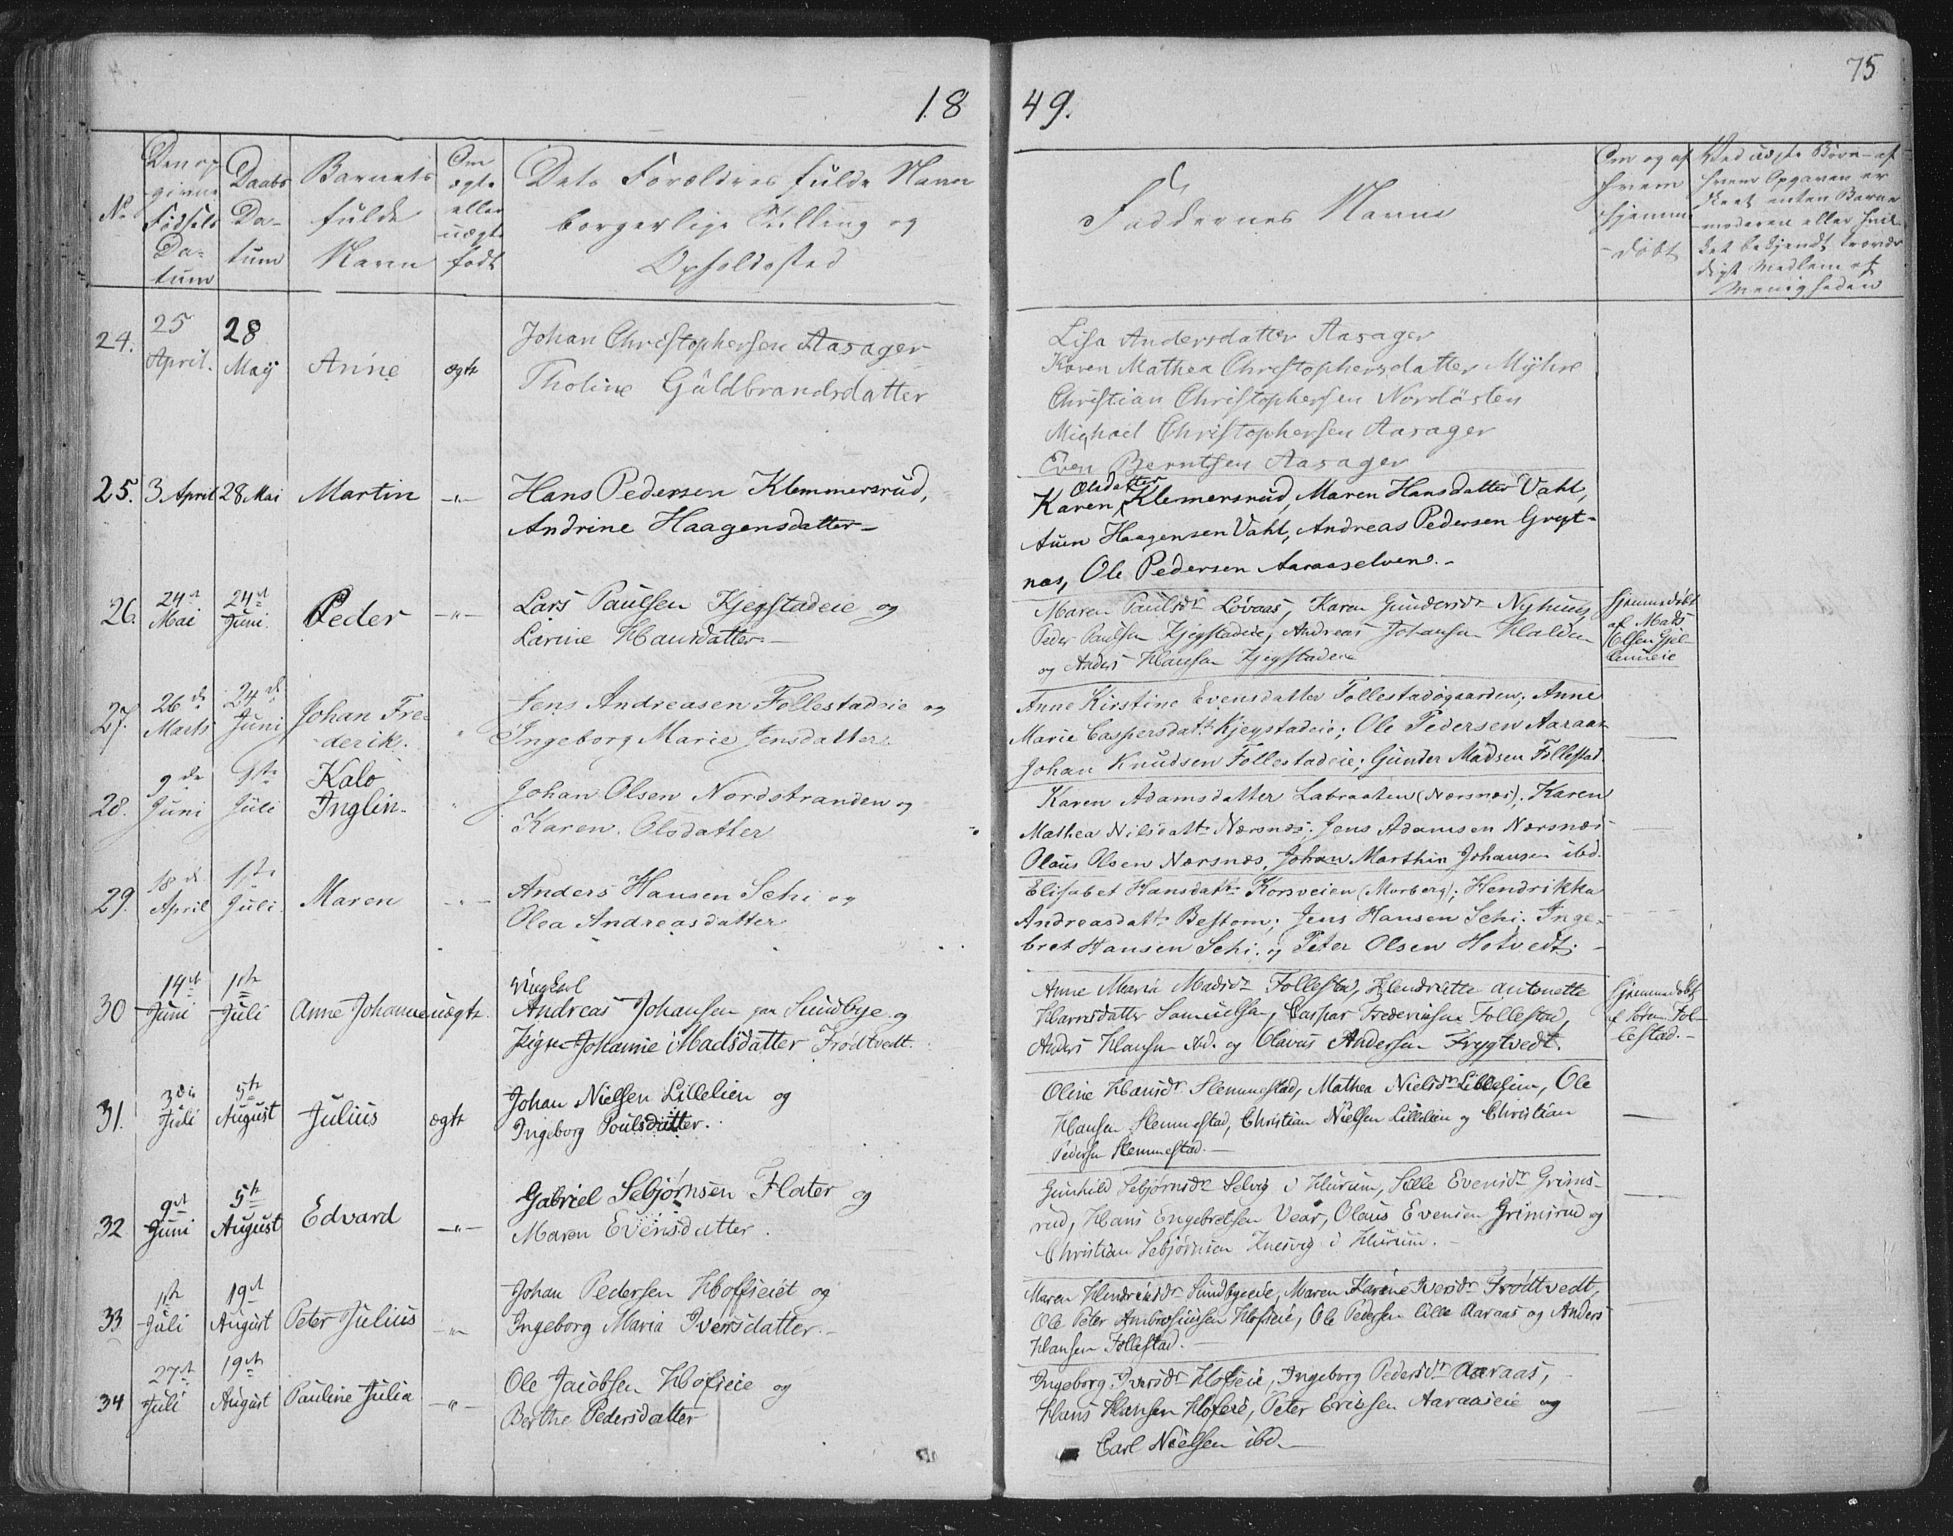 75
18 49.
No
Den op-
givne
Fødsels
Da-
tum
Daabs
Da-
tum
Barnets
fulde
Navn
Om
ægte
eller
uægte
født
Dets Forældres fulde Navn
borgerlige Stilling og
Opholdssted
Faddernes Navne
Om og af
hvem
hjemme
-døbt
Ved uægte Børn - af
hvem Opgaven er
skeet enten Barne
moderen eller
det bekjendt trovær
digt Medlem af
Menigheden
24.
25
April.
28
Maij
Anne
ægte
Johan Christophersen Aasager
Tholine Guldbrandsdatter
Lisa Andersdatter Aasager
Karen Mathea Christophersdatter Myhre
Christian Christophersen Nordøsten
Michael Christophersen Aasager
Even Berntsen Aasager
25. 3 April 28 Mai Martin -"-
Hans Pedersen Klemmersrud,
Andrine Haagensdatter -
Olsdatter
Karen Klemersrud, Maren Hansdatter Vahl,
Auen Haagensen Vahl, Andreas Pedersen Grøt-
nes, Ole Pedersen Aaraaselven. -
26.
24de
Mai
24de
Juni
Peder -"-
Lars Paulsen Kjegstadeie og
Larine Hansdatter. -
Maren Paulsdr Løvaas, Karen Gundersdr Nyhuus,
Peder Paulsen Kjegstadeie, Andreas Johansen Halden
og Anders Hansen Kjegstadeie
Hjemmedøbt
af Mads
Olsen Gjel-
lumeie
27.
26de
Marts
24de
Juni
Johan Fre-
derik.
"
Jens Andreasen Follestadeie og
Ingeborg Marie Jensdatter
Anne Kirstine Evensdatter Follestadgaarden; Anne
Marie Caspersdatt. Kjegstadeie; Ole Pedersen Aaraas
Johan Knudsen Follestadeie; Gunder Madsen Follestad.
28.
9de
Juni
1ste
Juli
Kalo
Inglin.
"
Johan Olsen Nordstranden og
Karen Olsdatter
Karen Adamsdatter Labraaten (Nærsnæs). Karen
Mathea Nilsdatt. Nærsnæs; Jens Adamsen Nærsnæs
Olaus Olsen Nærsnæs, Johan Marthin Johansen ibd.
29.
18de
April
1ste
Juli
Maren -"-
Anders Hansen Schi og
Olea Andreasdatter
Elisabet Hansdatt. Korsveien (Morberg); Hendrikka
Andreasdatt. Bestom; Jens Hansen Schi. Inge-
bret Hansen Schi. og Peter Olsen Hotvedt; -
30
14de
Juni
1ste
Juli
Anne Johanne uægte.
Ungkarl
Andreas Johansen paa Sundbye og
Pigen Johanne Madsdatter Frødtvedt.
Anne Maria Madsdr Follestad, Hendriette Antonette
Hansdatter Samuelsen, Caspar Frederiksen Follestad,
Anders Hansen ibd. og Olavus Andersen Frygtvedt.
Hjemmedøbt
af Søren Fol-
lestad. -
31.
3die
Juli
5te
August
Julius ægte
Johan Nielsen Lillelien og
Ingeborg Poulsdatter.
Oline Hansdr Slemmestad, Mathea Nielsdr Lillelien, Ole
Hansen Slemmestad, Christian Nielsen Lillelien og Christian
Pedersen Slemmestad. -
32
9de
Juni
5te
August
Edvard -"-
Gabriel Sebjørnsen Flater og
Maren Evensdatter.
Gunhild Sebjørnsdr Selvig i Hurum, Sille Evensdr Grims-
rud, Hans Engebretsen Vear, Olaus Evensen Grimsrud og
Christian Sebjørnsen Knesvig i Hurum. -
33
1ste
Juli
19de
August
Peter Julius -"-
Johan Pedersen Hofseiet og
Ingeborg Maria Iversdatter. -
Maren Hendriksdr Sundbyeeie, Maren Karine Iversdr Frødtvedt,
Ole Peter Ambrosiussen Hofseie, Ole Pedersen lille Aaraas og Anders
Hansen Follestad. -
34
27de
Juli
19de
August
Pauline Julia -"-
Ole Jacobsen Hofseie og
Berthe Pedersdatter
Ingeborg Iversdr Hofseie, Ingeborg Pedersdr Aaraas,
Hans Hansen Hofseie, Peter Ericksen Aaraaseie og
Carl Nielsen ibd. -